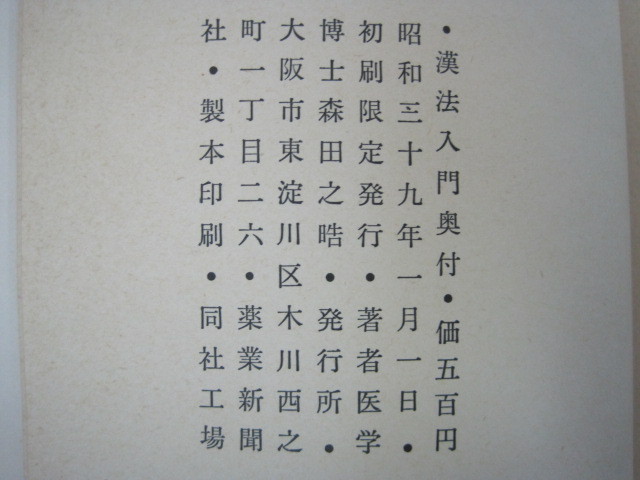 ・漢法入門奥付・価五百円
昭和三十九年一月一日・
初刷限定発行・著者医学
博士森田之晧・発行所・
大阪市東淀川区木川西之
町一丁目二六・薬業新聞
社・製本印刷・同社工場